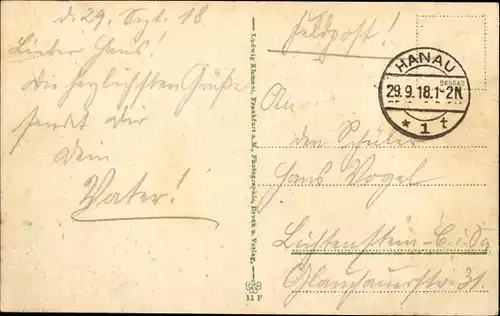 d. 29. Sept. 18
Lieber Hans!
Die herzlichsten Grüße
sendet Dir
Dein
Vater!
Ludwig Klement, Frankfurt a. M., Photographie, Druck u. Verlag.
11 F
Feldpost!
HANAU
29.9.18.1-2N
* 1 t
An
den Schüler
Hans Vogel
Lichtenstein-C. i/Sa
Glauchauerstr. 31.